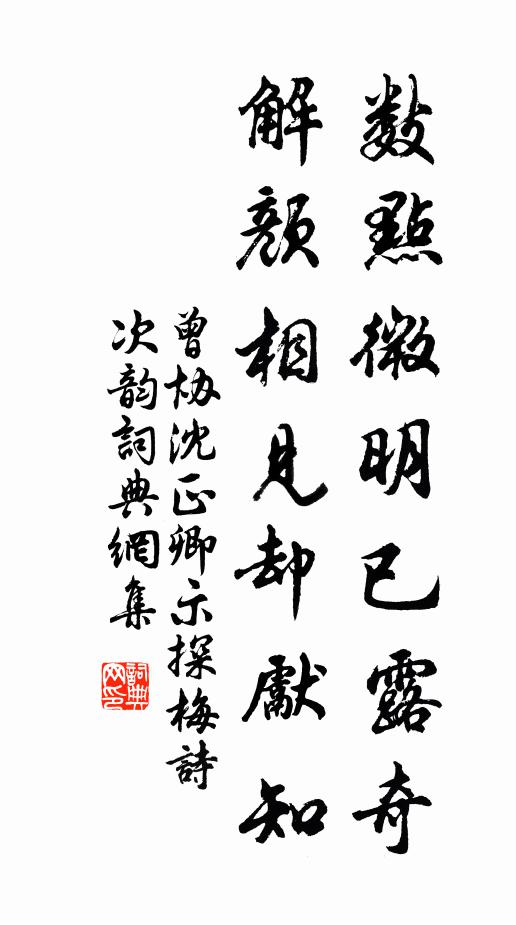 數點微明已露奇
解顏相見却獻知
曾協沈正卿示探梅詩
次韵詞典網集
詞典网印